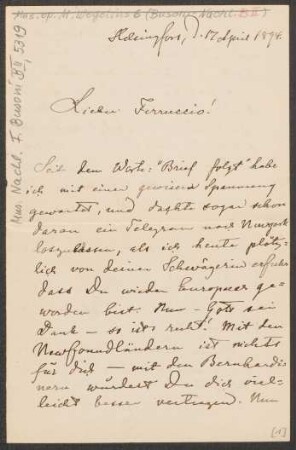 Mus. ep. M. Wegelius 6 (Busoni-Nachl. B II)
Mus. Nachl. F. Busoni B II, 5319
Helsingfors, d. 17 April 1894.
Lieber Ferruccio!
Seit dem Worte: "Brief folgt" habe
ich mit einer gewissen Spannung
gewartet, und dachte sogar schon
daran ein Telegram nach Newyork
loszulassen, als ich heute plötz-
lich von deiner Schwägerin erfuhr
dass Du wieder Europäer ge-
worden bist. Nun – Gott sei
Dank – so ists recht! Mit den
Newfoundländern ist nichts
für dich – mit den Bernhardi-
nern würdest Du dich viel-
leicht besser vertragen. Nun
[1]